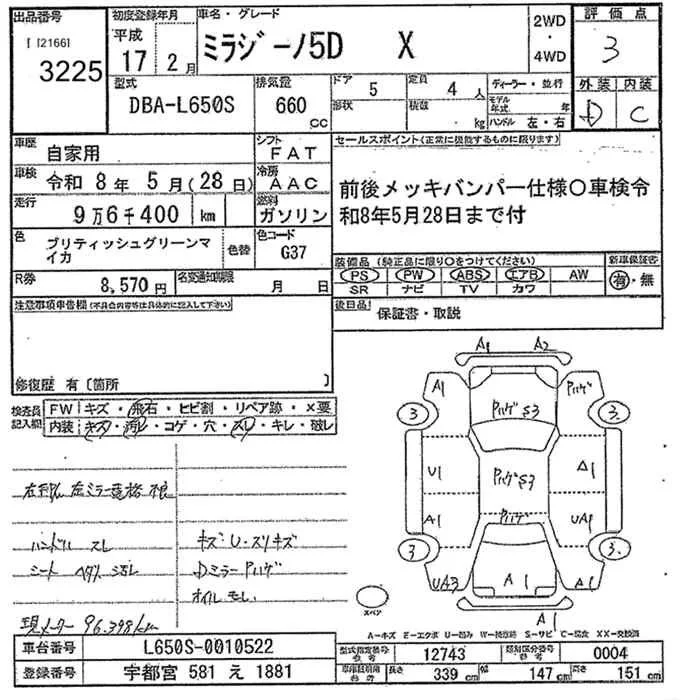 出品番号
[ I2166]
3225
初度登録年月
平成
17年 2月
車名・グレード
ミラジーノ5D X
2WD
・
4WD
評価点
3
外装 内装
D C
型式
DBA-L650S
排気量
660
CC
ドア 5
定員 4人
形状
積載 kg
ディーラー・並行
モデル年式 年
ハンドル 左・右
車歴 自家用
シフト FAT
車検 令和 8年 5月(28日)
冷房 AAC
走行 9万6千400 km
燃料 ガソリン
色 ブリティッシュグリーンマイカ
色替
色コード G37
R券 8,570円
名変通知期限 月 日
セールスポイント(正常に機能するものに限ります)
前後メッキバンパー仕様〇車検令
和8年5月28日まで付
装備品(純正品に限り〇をつけてください)
PS PW ABS エアB AW
SR ナビ TV カワ
新車保証書
有・無
後日品!
保証書・取説
注意事項申告欄(不具合内容等は具体的に記入して下さい)
修復歴 有〔箇所 〕
検査員記入欄
FW キズ・飛石・ヒビ割・リペア跡・X要
内装 キズ・汚れ・コゲ・穴・スレ・キレ・破レ
ハンドル スレ
シート
キズ・U・スリキズ
Dミラー Pハゲ
オイルモレ
現メーター 96.398km
A1 A2
A1 Pハゲ
Pハゲ S3
3 3
U1 Pハゲ S3 A1
A1 Pハゲ UA1
3 3
UA3 A1 A1
A1
スペア
A-キズ E-エクボ U-凹み W-補修跡 S-サビ C-腐食 XX-交換済
車台番号 L650S-0010522
登録番号 宇都宮 581 え 1881
型式指定番号 参考 12743
類別区分番号 参考 0004
車庫証明用 参考 長さ 339cm 幅 147cm 高さ 151cm